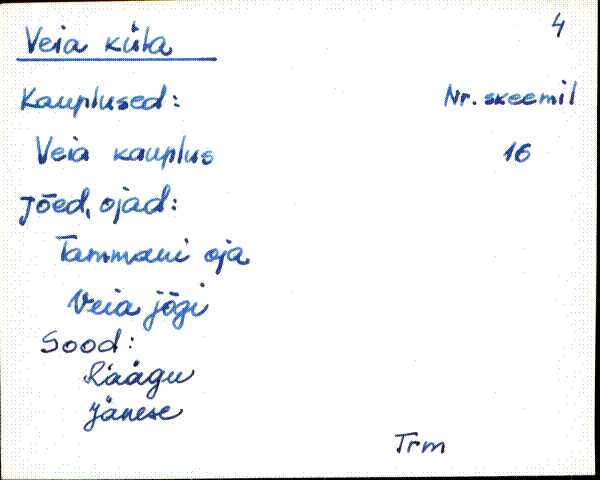 4
Veia küla
Kauplused: Nr. skeemil
Veia kauplus 16
Jõed, ojad:
Tammani oja
Veia jõgi
Sood:
Räägu
Jänese
Trm